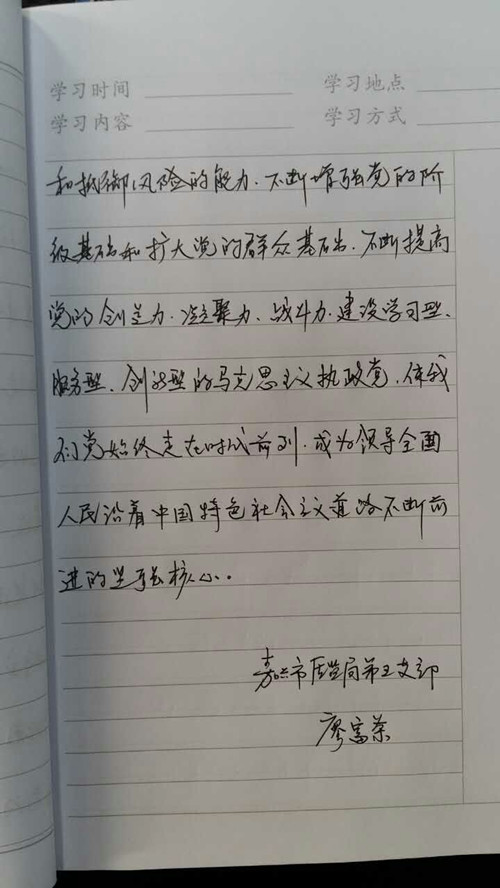 学习时间
学习地点
学习内容
学习方式
和抵御风险的能力、不断增强党的阶
级基础和扩大党的群众基础、不断提高
党的创造力、凝聚力、战斗力、建设学习型、
服务型、创新型的马克思主义执政党,使我
们党始终走在时代前列,成为领导全国
人民沿着中国特色社会主义道路不断前
进的坚强核心。
市 局第五支部
廖富荣